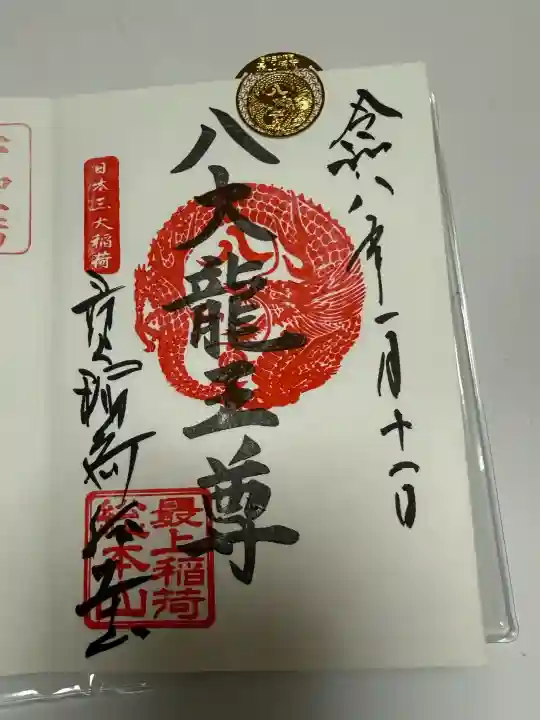 令和八年一月十八日
八大龍王尊
日本三大稲荷
最上稲荷総本山
最上稲荷
総本山